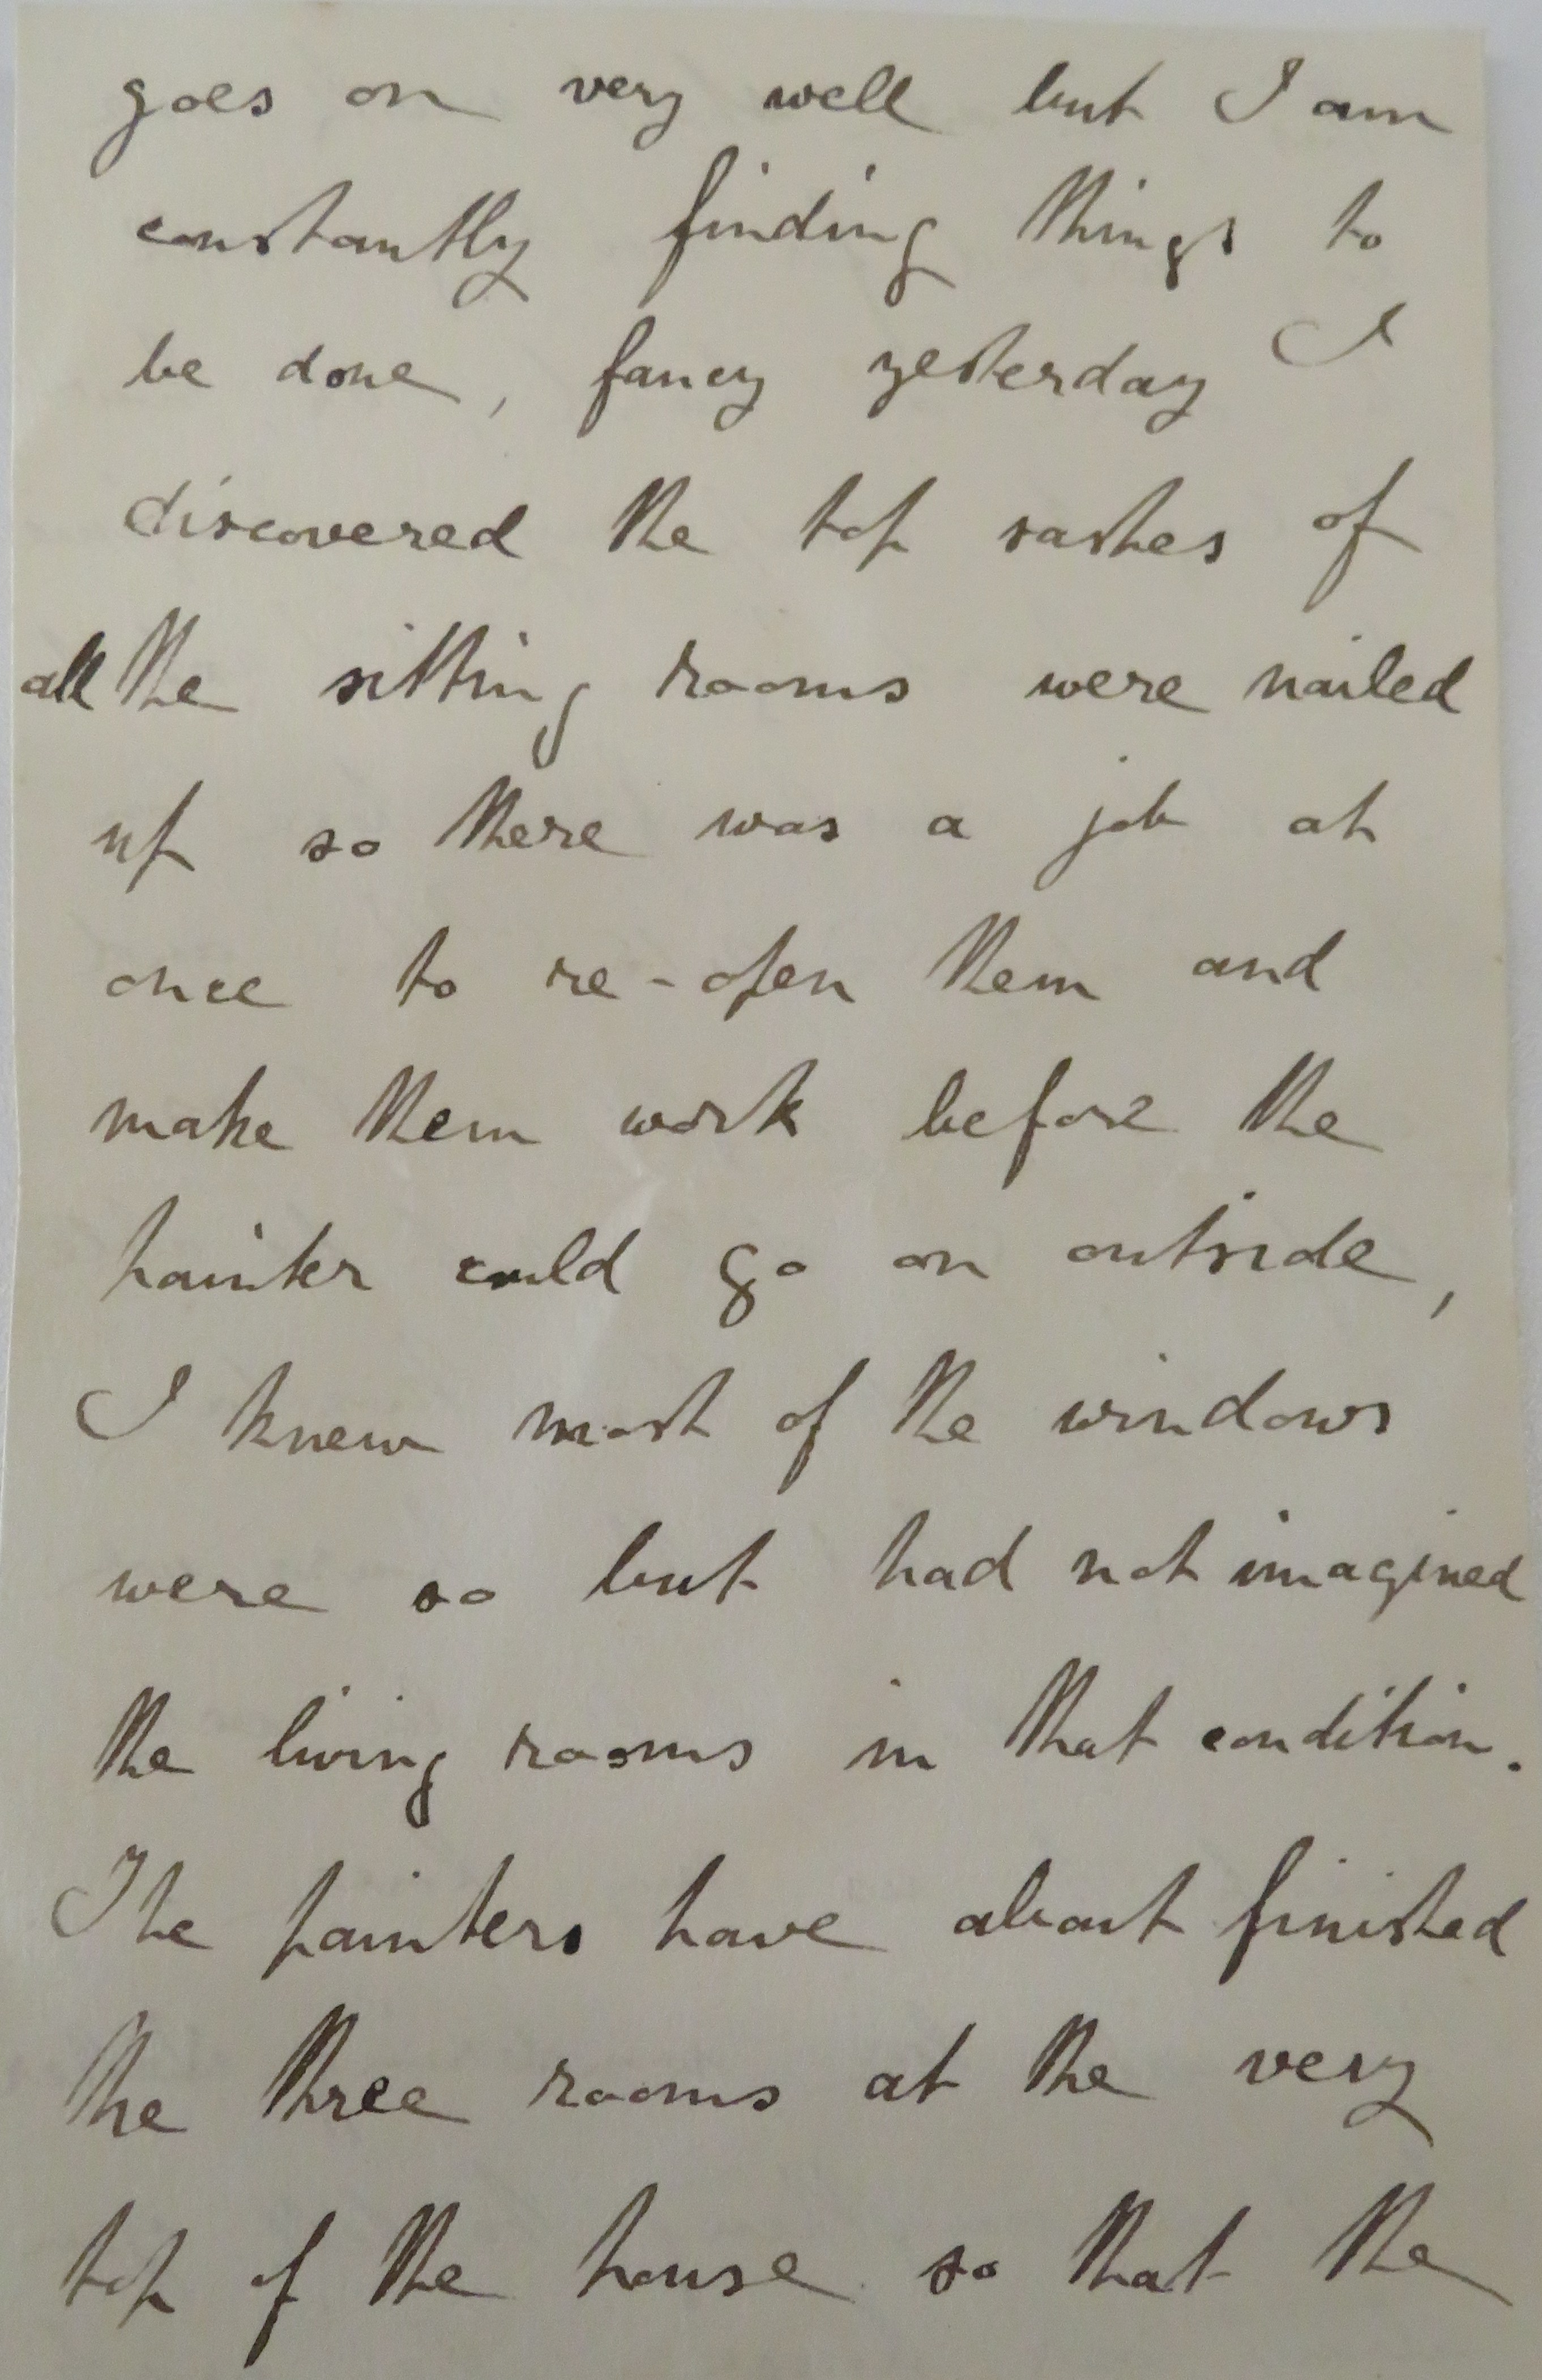 goes on very well but I am
constantly finding things to
be done, fancy yesterday I
discovered the top sashes of
all the sitting rooms were nailed
up so there was a job at
once to re-open them and
make them work before the
painter could go on outside,
I knew most of the windows
were so but had not imagined
the living rooms in that condition.
The painters have about finished
the three rooms at the very
top of the house so that the